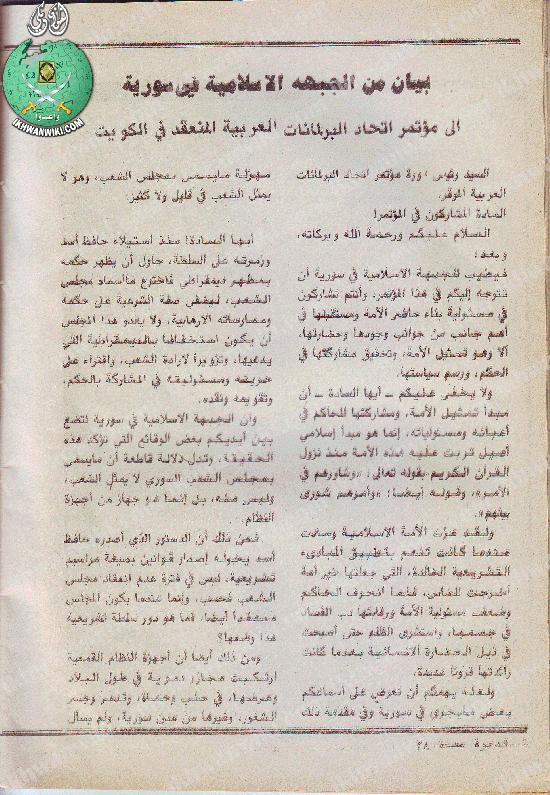 IKHWANWIKI.COM
بيان من الجبهه الاسلامية في سورية
الى مؤتمر اتحاد البرلمانات العربية المنعقد في الكويت
السيد رئيس دورة مؤتمر اتحاد البرلمانات
العربية الموقر.
السادة المشاركون في المؤتمر!
السلام عليكم ورحمة الله وبركاته،
وبعد؛
فيطيب للجبهة الاسلامية في سورية أن
تتوجه إليكم في هذا المؤتمر، وأنتم تشاركون
في مسئولية بناء حاضر الأمة ومستقبلها في
أهم جانب من جوانب وجودها وحضارتها،
ألا وهو تمثيل الأمة، وتحقيق مشاركتها في
الحكم، ورسم سياستها.
ولا يخفى عليكم ـ أيها السادة ـ أن
مبدأ تمثيل الأمة، ومشاركتها للحاكم في
أعبائه ومسئولياته، إنما هو مبدأ إسلامي
أصيل تربت عليه هذه الأمة منذ نزول
القرآن الكريم بقوله تعالى: «وشاورهم في
الأمر»، وقوله أيضا: «وأمرهم شورى
بينهم».
ولقد عزت الأمة الاسلامية وسادت
عندما كانت تنعم بتطبيق المبادىء
التشريعية الخالدة، التي جعلتها خير أمة
أخرجت للناس، فلما انحرف الحاكم
وضعفت مسئولية الأمة ورقابتها دب الفساد
في جسمها، واستشرى الظلم حتى أصبحت
في ذيل الحضارة الانسانية بعدما كانت
رائدتها قرونا عديدة.
ولعله يهمكم أن نعرض على أسماعكم
بعض مايجري في سورية وفي مقدمة ذلك
مهزلة مايسمى بمجلس الشعب، وهو لا
يمثل الشعب في قليل ولا كثير.
أيها السادة! منذ استيلاء حافظ أسد
وزمرته على السلطة، حاول أن يظهر حكمه
بمظهر ديمقراطي فاخترع ماأسماه مجلس
الشعب، ليضفي صفة الشرعية على حكمه
وممارساته الارهابية، ولا يعدو هذا المجلس
أن يكون استخفافا بالديمقراطية التي
يدعيها، وتزويرا لارادة الشعب، وافتراء على
حريته ومسئوليته في المشاركة بالحكم،
وتقويمه ونقده.
وان الجبهة الاسلامية في سورية لتضع
بين أيديكم بعض الوقائع التي تؤكد هذه
الحقيقة، وتدل دلالة قاطعة أن مايسمى
بمجلس الشعب السوري لا يمثل الشعب،
وليس منه، بل انما هو جهاز من أجهزة
النظام.
فمن ذلك أن الدستور الذي أصدره حافظ
أسد يخوله إصدار قوانين بصيغة مراسيم
تشريعية، ليس في فترة عدم انعقاد مجلس
الشعب فحسب، وإنما عندما يكون المجلس
منعقدا أيضا، فما هو دور سلطة تشريعية
هذا وضعها؟
ومن ذلك أيضا أن أجهزة النظام القمعية
ارتكبت مجازر دموية في طول البلاد
وعرضها، في حلب وحماة، وتدمر وجسر
الشغور، وغيرها من مدن سورية، ولم يسأل